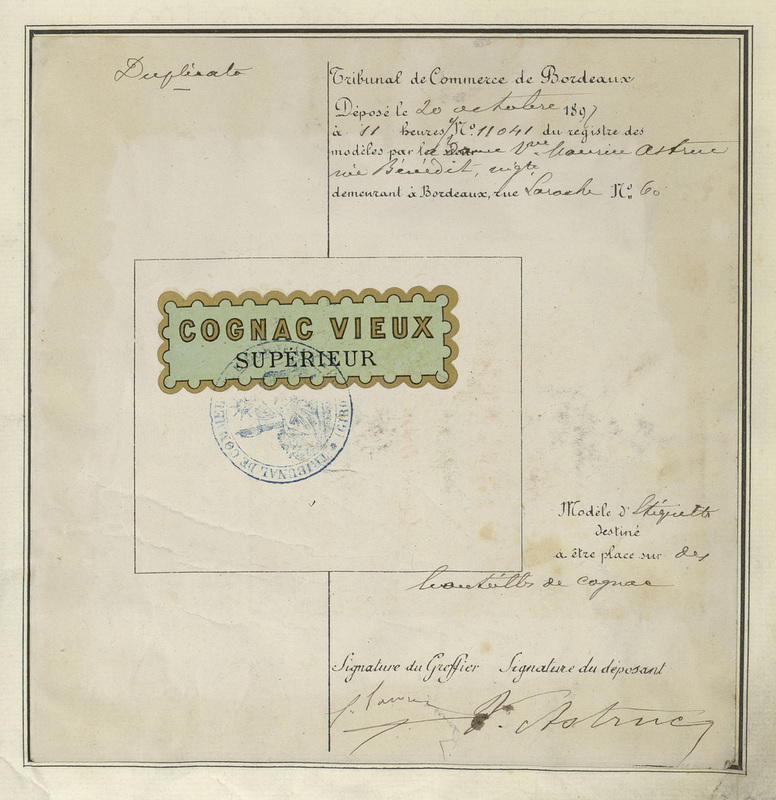 Duplicata
Tribunal de Commerce de Bordeaux
Déposé le 20 octobre 1897
à 11 heures, No. 11041 du registre des
modèles par la dame Vve Maurice Astruc
née Bénédit, nigte
demeurant à Bordeaux, rue Laroche No. 60
COGNAC VIEUX
SUPÉRIEUR
TRIBUNAL DE COMMERCE
GIRO
Modèle d'Etiquette
destiné
à être place sur des
bouteilles de cognac
Signature du Greffier Signature du déposant
V. Astruc